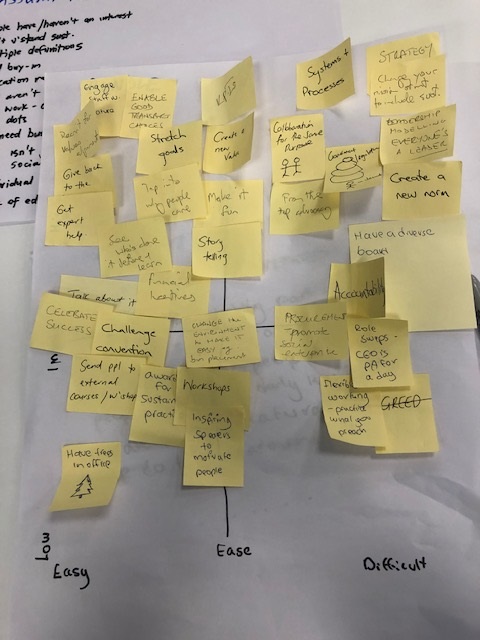 ple here/haven't an interest
tiple definitions
buy-in
aren't
work -
dots
need bus
isn't
socia
vidual
of ed
Engage
ENABLE
GOOD
CHOICES
KPIS
Systems +
Processes
STRATEGY
Change your
to include sust.
Stretch
goals
Create a
new
Collaboration
for the same
Purpose
LEADERSHIP
MODELLING
EVERYONE'S
A LEADER
Give back
to the
Tap into
why people
care
Make it
fun
From the
top
Create a
new norm
Get
expert
help.
See
who's done
it before &
learn
Story
telling
Have a diverse
board
Talk about it
financial
incentives
Accountability
CELEBRATE
SUCCESS
Challenge
convention
CHANGE THE
ENVIRONMENT
TO MAKE IT
EASY eg
bin placement
PROCUREMENT
promote
social
enterprise
Role
swaps -
CEO is
PA for
a day
Send ppl to
external
courses/w'shops
award
for
sustain
practi
Workshops
Inspiring
Speakers
to
motivate
people
working
- practice
what you
preach
GREED
Have trees
in office
Low
Easy
Ease
Difficult